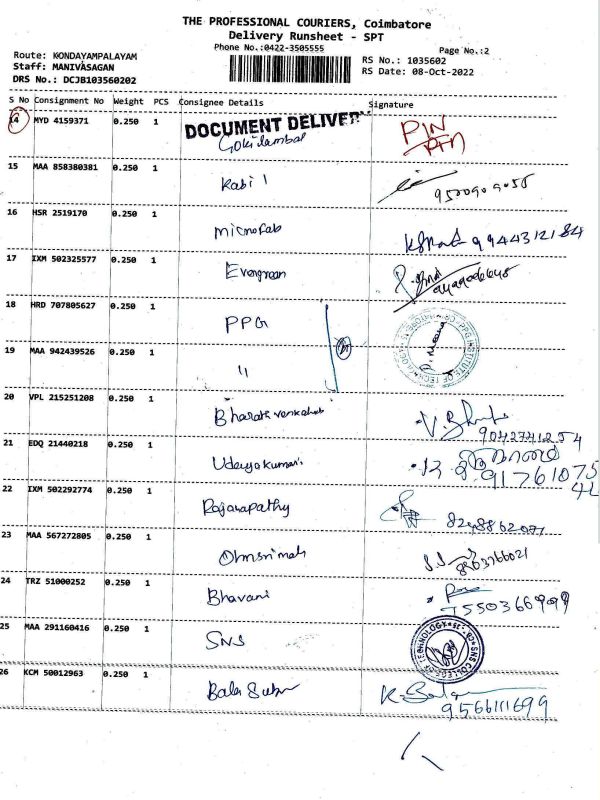 THE PROFESSIONAL COURIERS, Coimbatore
Delivery Runsheet - SPT
Phone No.:0422-3505555
Page No.:2
Route: KONDAYAMPALAYAM
Staff: MANIVASAGAN
DRS No.: DCJB103560202
RS No.: 1035602
RS Date: 08-Oct-2022
S No Consignment No Weight PCS Consignee Details Signature
14 MYD 4159371 0.250 1 DOCUMENT DELIVERY
Gokilambal
15 MAA 858380381 0.250 1
Kabil
16 HSR 2519170 0.250 1
Microfab 9944312184
17 IXM 502325577 0.250 1
Evergreen
18 HRD 707805627 0.250 1
PPG
19 MAA 942439526 0.250 1
"
20 VPL 215251208 0.250 1
21 EDQ 21440218 0.250 1
Udayakumari
22 IXM 502292774 0.250 1
Rajarapathy
23 MAA 567272805 0.250 1
24 TRZ 51000252 0.250 1
Bhavani
25 MAA 291160416 0.250 1
SNS
SNS COLLEGE OF TECHNOLOGY
26 KCM 50012963 0.250 1
9566111699